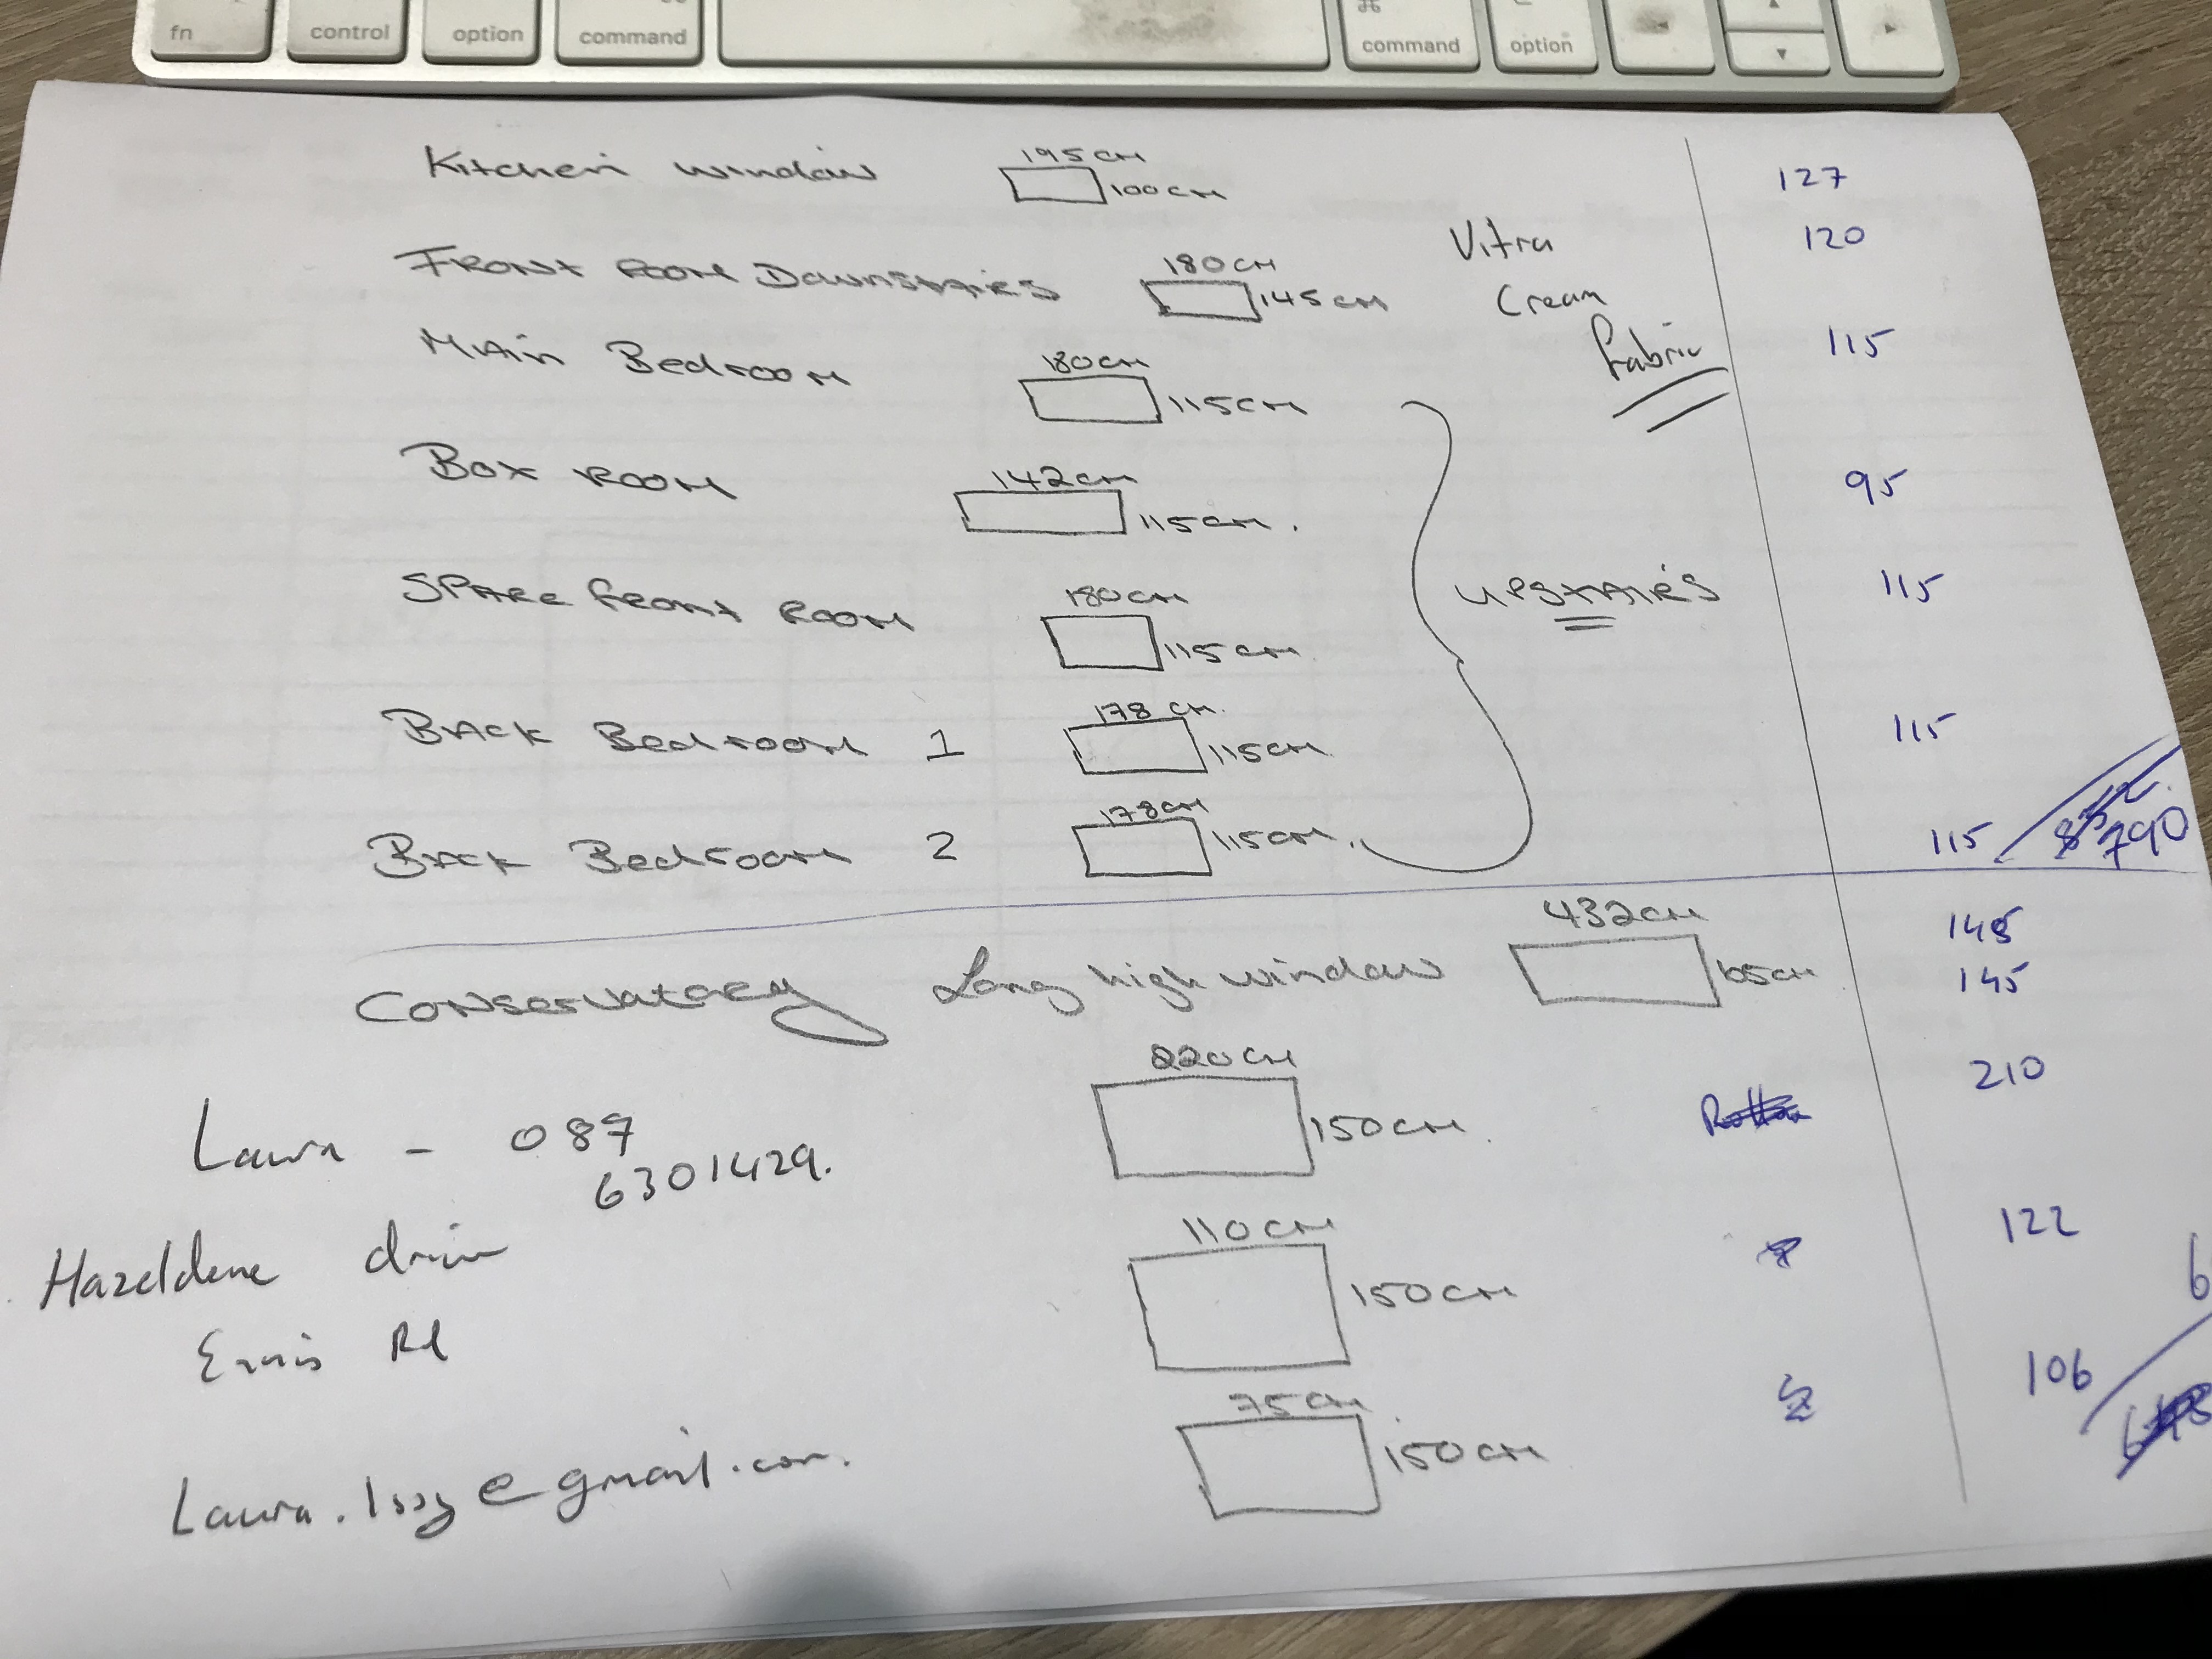 fn control option command command option
Kitchen window 195cm 100cm 127
Vitra 120
Front Room Downstairs 180cm 145cm Cream
Main Bedroom 180cm 115cm Fabric 115
Box Room 142cm 115cm. 95
Spare front Room 180cm 115cm upstairs 115
Back Bedroom 1 178cm. 115cm 115
Back Bedroom 2 178cm 115cm. 115 790
432cm 145
Conservatory Long high window 165cm 145
220cm 210
Laura - 087 150cm.
6301429.
110cm 122
Hazeldene drive 150cm
Ennis Rd 106
75cm
Laura. @gmail.com. 150cm